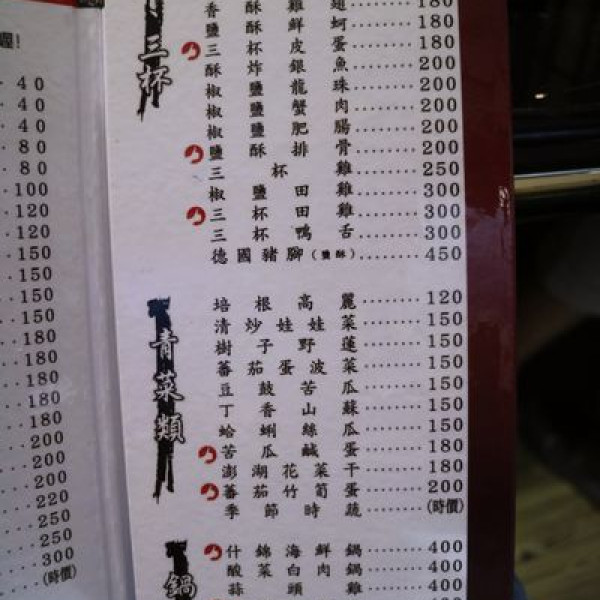 喔!
40
40
40
80
80
100
120
120
150
150
150
150
180
180
180
180
180
200
200
200
220
250
250
300
(時價)
三杯
香酥雞翅 180
鹽酥鮮蚵 180
三杯皮蛋 180
酥炸銀魚 200
椒鹽龍珠 200
椒鹽蟹肉 200
椒鹽肥腸 200
鹽酥排骨 200
三杯雞 250
椒鹽田雞 300
三杯田雞 300
三杯鴨舌 300
德國豬腳(鹽酥) 450
青菜類
培根高麗 120
清炒娃娃菜 150
樹子野蓮 150
蕃茄蛋波菜 150
豆鼓苦瓜 150
丁香山蘇 150
蛤蜊絲瓜 150
苦瓜鹹蛋 180
澎湖花菜干 180
蕃茄竹筍蛋 200
季節時蔬 (時價)
鍋
什錦海鮮鍋 400
酸菜白肉鍋 400
蒜頭雞 400